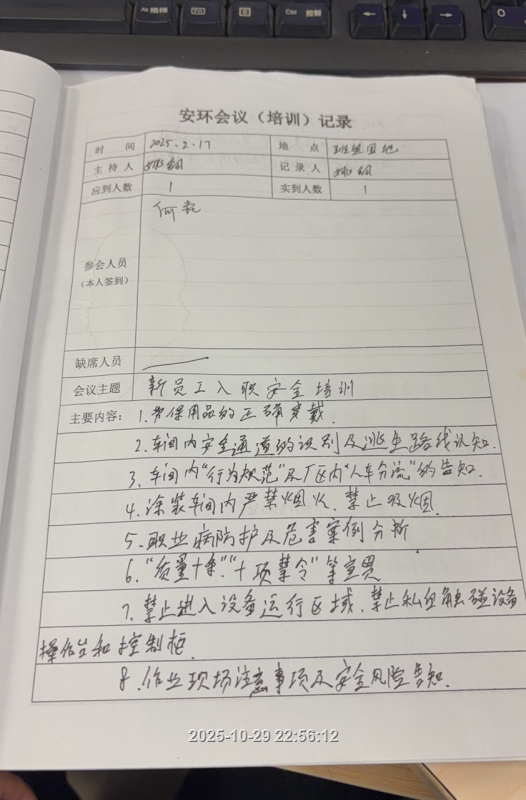 Alt 换档
Ctrl 控制
安环会议（培训）记录
时 间 2025.2.17 地 点 班组园地
主持人 记录人
应到人数 1 实到人数 1
何
参会人员
（本人签到）
缺席人员
会议主题 新员工入职安全培训
主要内容： 1.劳保用品的正确穿戴.
2.车间内安全通道的识别及逃生路线认知.
3.车间内“行为规范”及厂区内“人车分流”的告知.
4.涂装车间内严禁烟火，禁止吸烟.
5.职业病防护及危害案例分析
6.“质量十条”“十项禁令”等宣贯
7.禁止进入设备运行区域，禁止私自触碰设备
操作台和控制柜.
8.作业现场注意事项及安全风险告知.
2025-10-29 22:56:12